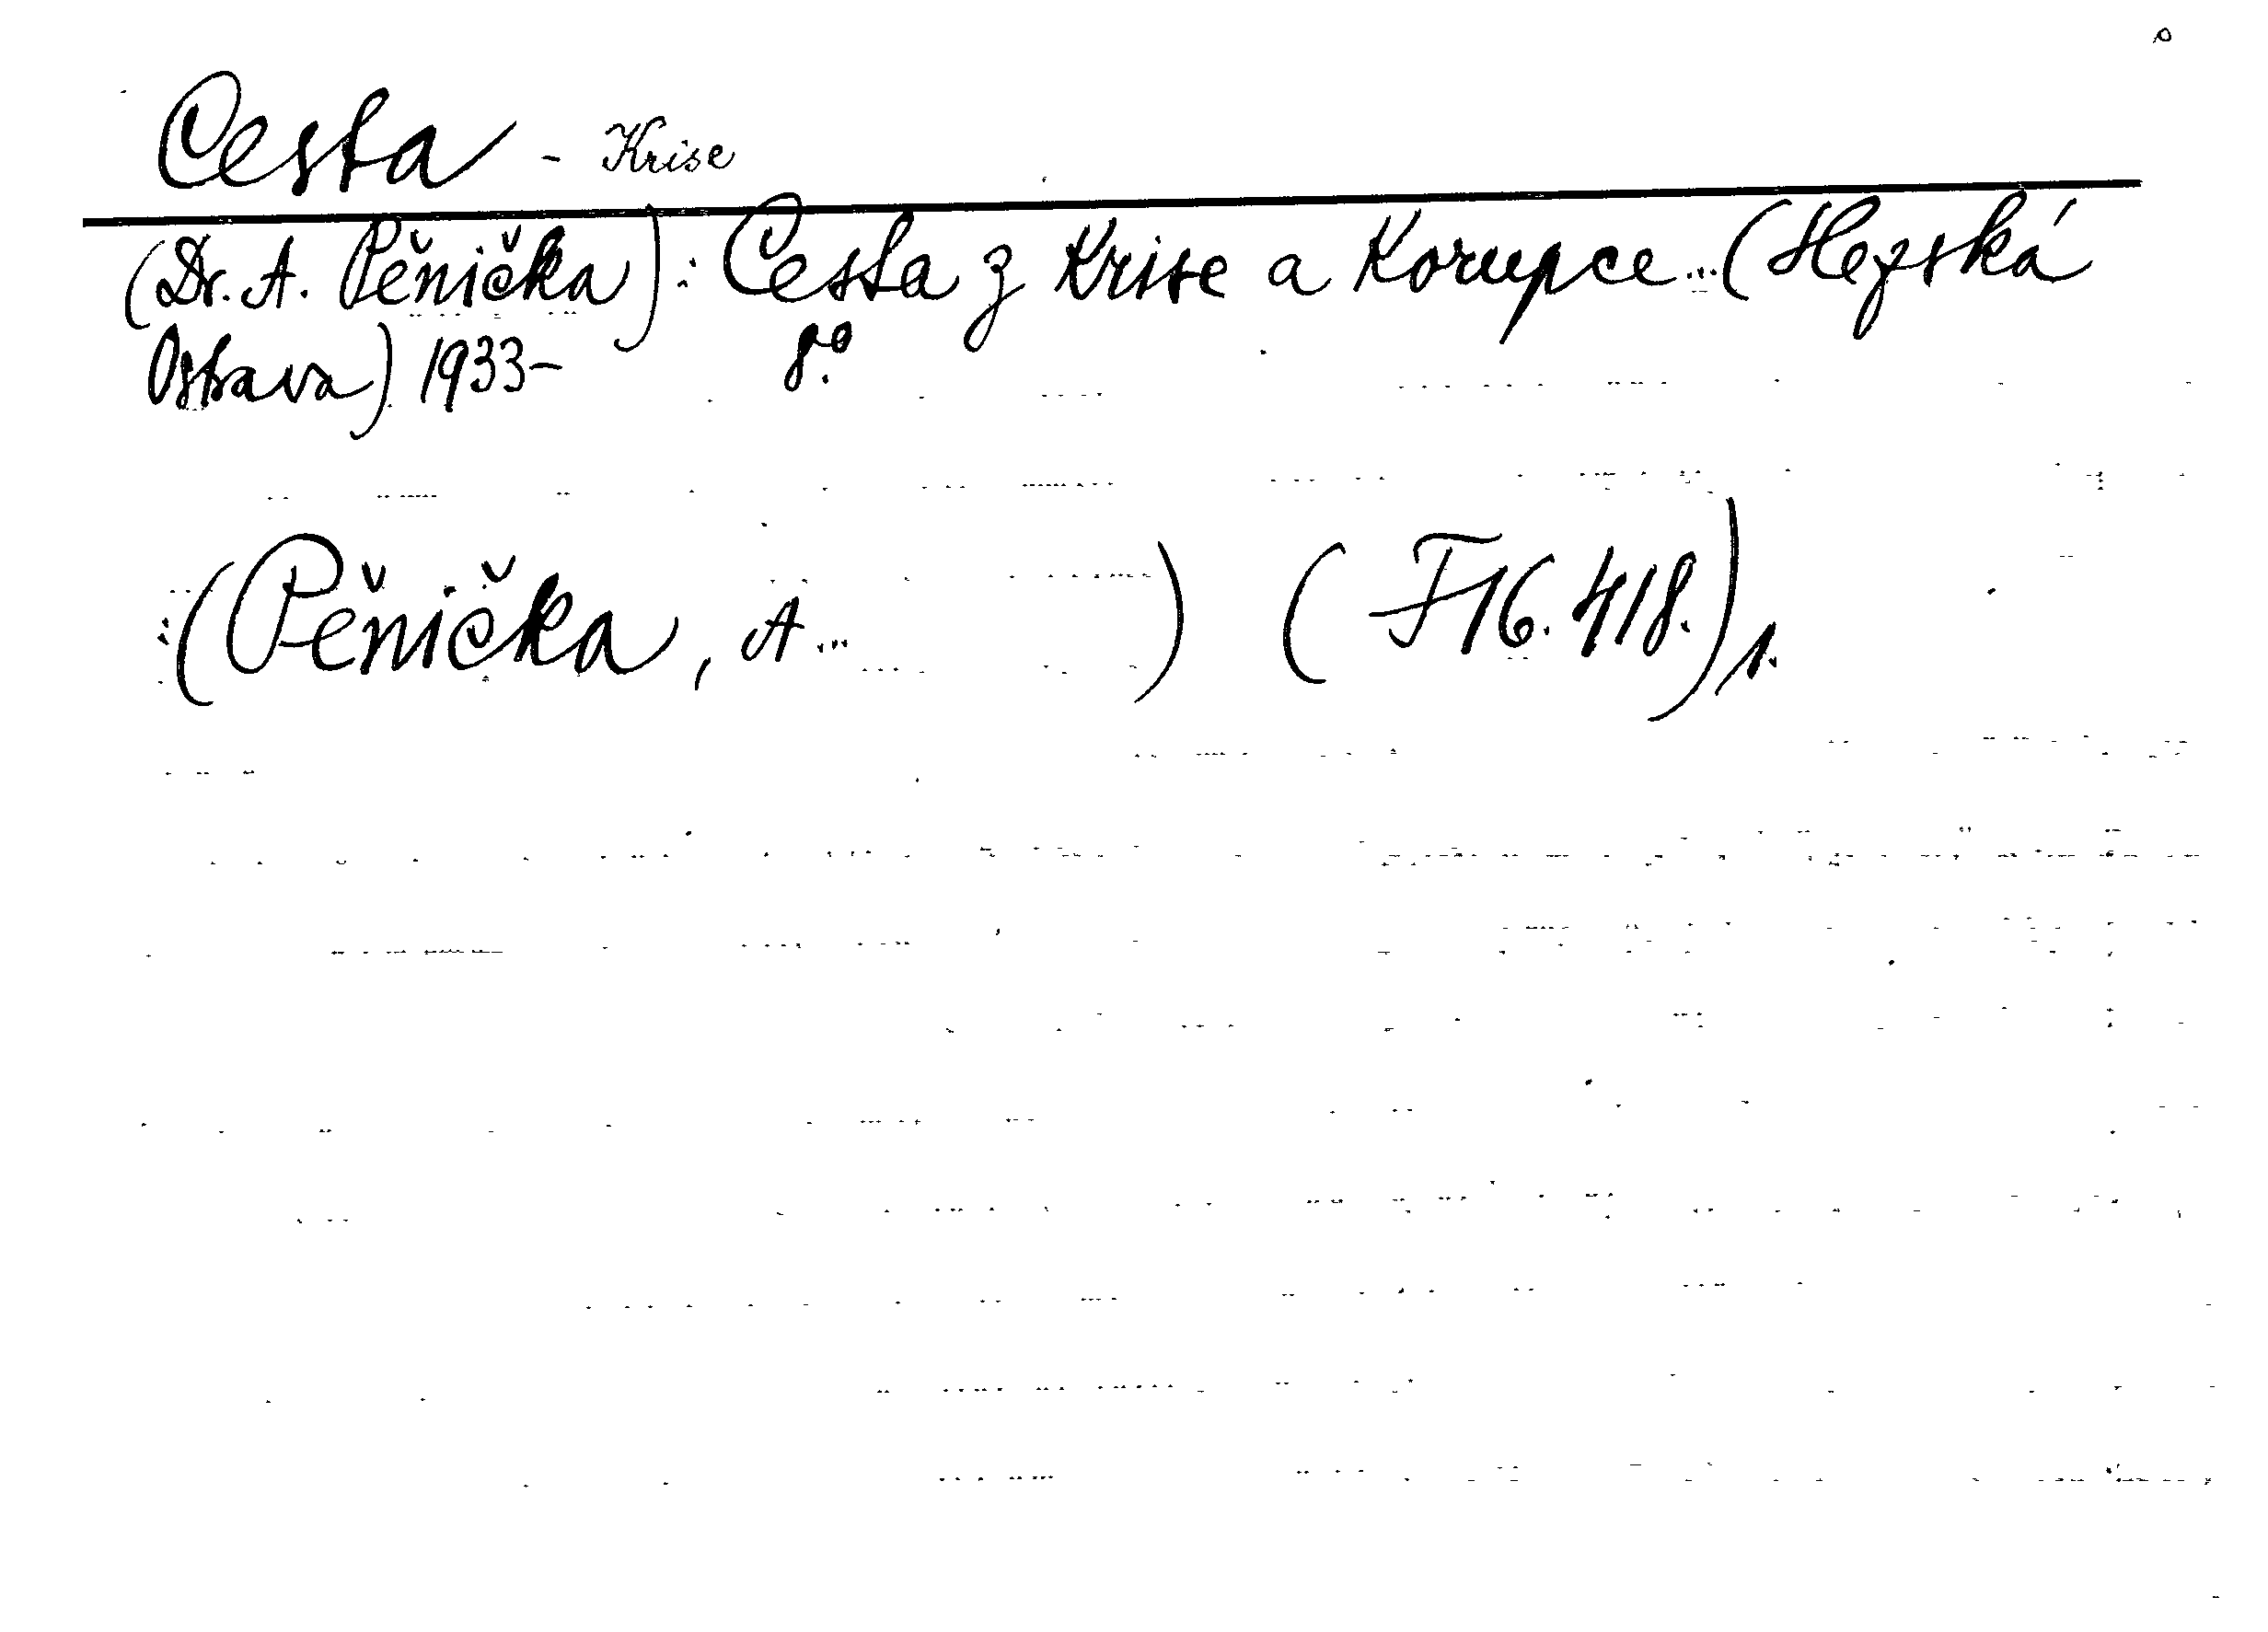 Cesta - Krise
(Dr. A. Pěnička): Cesta z Krise a Korupce...(Slezská
Ostrava) 1933- 8º.
(Pěnička, A... ) (F16.418.) 1.